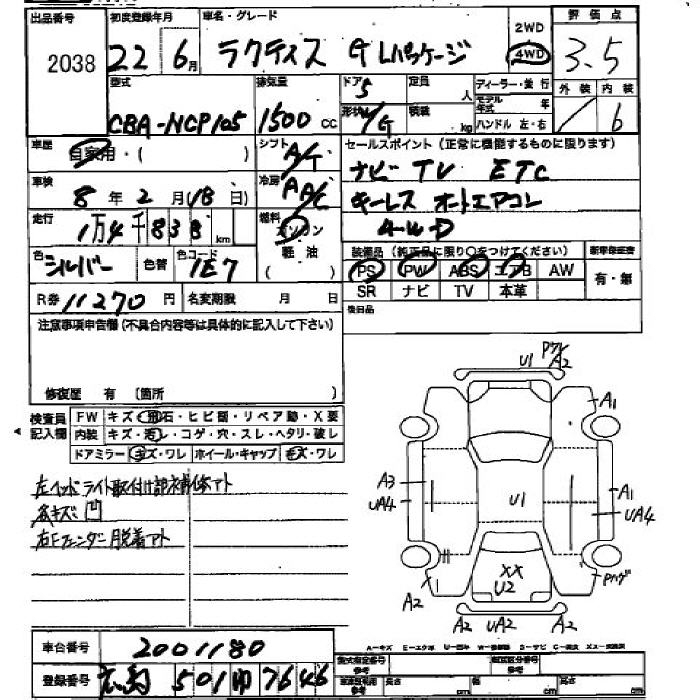 出品番号 初度登録年月 車名・グレード 2WD 評価点
2038 22 6月 ラクティス G Lパッケージ 4WD 3.5
型式 排気量 ドア 5 定員 人 ディーラー・並行 外装 内装
CBA-NCP105 1500cc 形状 積載 kg モデル年式 年 ハンドル 左・右 b
車歴 自家用・( ) シフト A/T セールスポイント(正常に機能するものに限ります)
車検 8年2月18日) 冷房 AAC ナビ TV ETC
走行 1万4千838km 燃料 ガソリン 軽油 ( ) キーレス オートエアコン
色 シルバー 色替 色コード 1E7 装備品(純正品に限り○をつけてください) 新車保証書
PS PW ABS エアB AW 有・無
R券 11270円 名変期限 月 日 SR ナビ TV 本革
注意事項申告欄(不具合内容等は具体的に記入して下さい) 後日品
修復歴 有 〔箇所 〕
検査員記入欄 FW キズ・飛石・ヒビ割・リペア跡・X要
内装 キズ・汚レ・コゲ・穴・スレ・ヘタリ・破レ
ドアミラー キズ・ワレ ホイール・キャップ キズ・ワレ
左ヘッドライト取付け部補修アト
キズ 凹
右Fフェンダー脱着アト
U1 A2
A1
A3 UA4 U1 A1 UA4
XX U2
A2 A2 UA2 A2
車台番号 2001180
登録番号 広島 501 7646